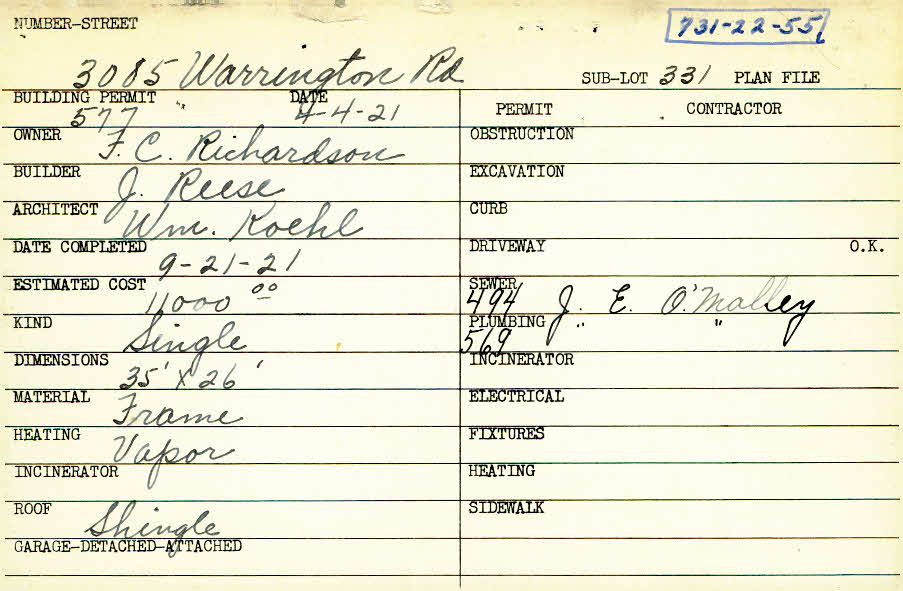 NUMBER-STREET
731-22-55
3085 Warrington Rd SUB-LOT 331 PLAN FILE
BUILDING PERMIT 577 DATE 4-4-21
OWNER F. C. Richardson
BUILDER J. Reese
ARCHITECT Wm. Koehl
DATE COMPLETED 9-21-21
ESTIMATED COST 11000 00
KIND Single
DIMENSIONS 35' X 26'
MATERIAL Frame
HEATING Vapor
INCINERATOR
ROOF Shingle
GARAGE-DETACHED-ATTACHED
PERMIT CONTRACTOR
OBSTRUCTION
EXCAVATION
CURB
DRIVEWAY O.K.
SEWER 494 J. E. O'Malley
PLUMBING 569 " "
INCINERATOR
ELECTRICAL
FIXTURES
HEATING
SIDEWALK